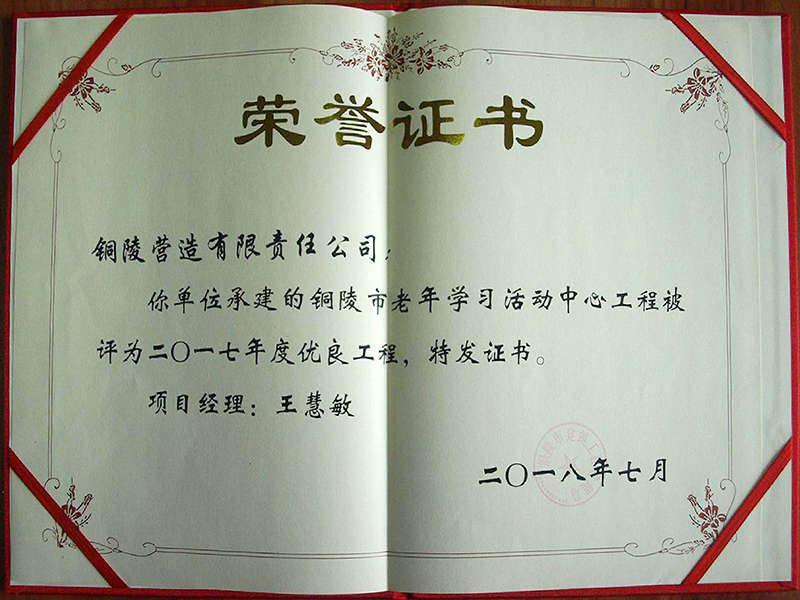 荣誉证书
铜陵营造有限责任公司：
你单位承建的铜陵市老年学习活动中心工程被
评为二〇一七年度优良工程，特发证书。
项目经理：王慧敏
二〇一八年七月